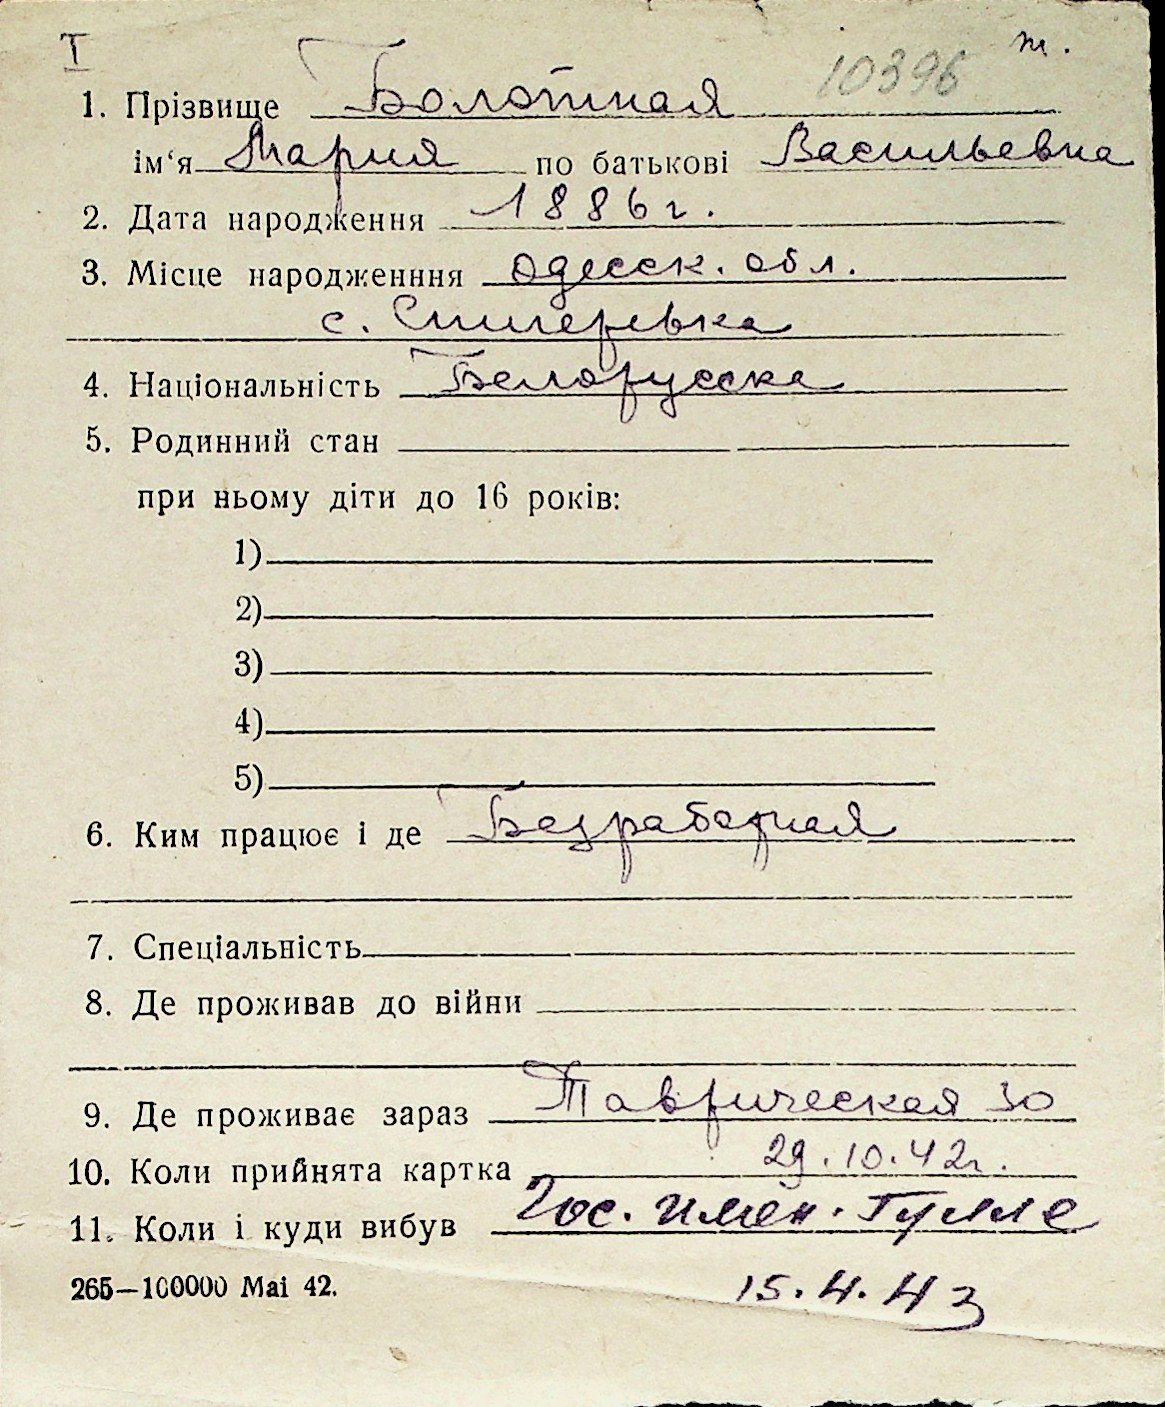 I
ж.
10396
1. Прізвище Болотная
ім‘я Мария по батькові Васильевна
2. Дата народження 1886 г.
3. Місце народженння Одесск. обл.
с. Снигеревка
4. Національність Белорусска
5. Родинний стан
при ньому діти до 16 років:
1)
2)
3)
4)
5)
6. Ким працює і де Безработная
7. Спеціальність
8. Де проживав до війни
9. Де проживає зараз Таврическая 30
10. Коли прийнята картка 29.10.42г.
11. Коли і куди вибув Гос. имен. Гулле
265—100000 Маі 42.
15.4.43